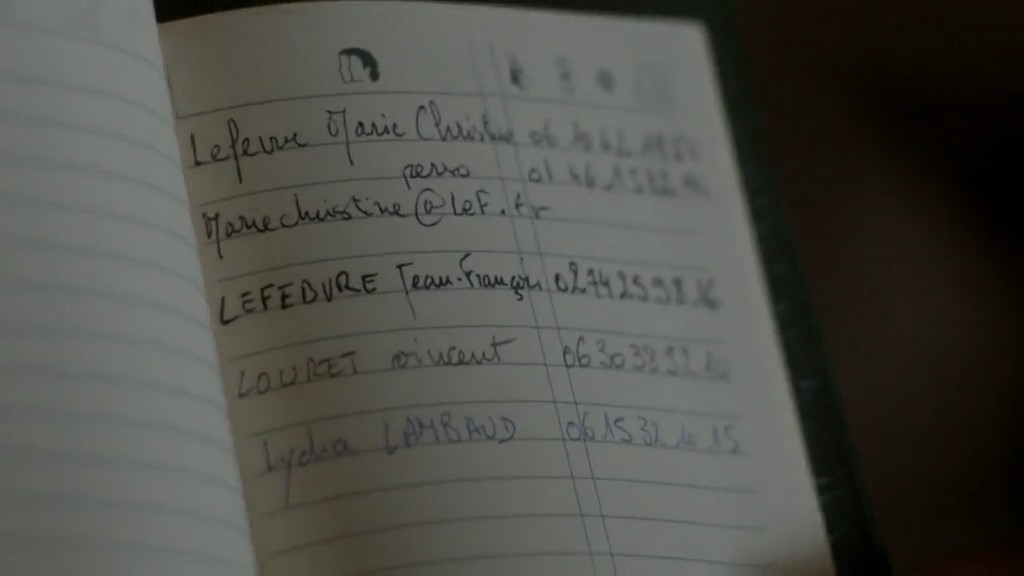 Lefevre Marie Christine 06
perso 01 46 15 82
Mariechristine@Lef.fr
LEFEBVRE Jean-François 02 74 25 98 16
LOURET vincent 06 30 38 92
Lydia LAMBAUD 06 15 32 10 15